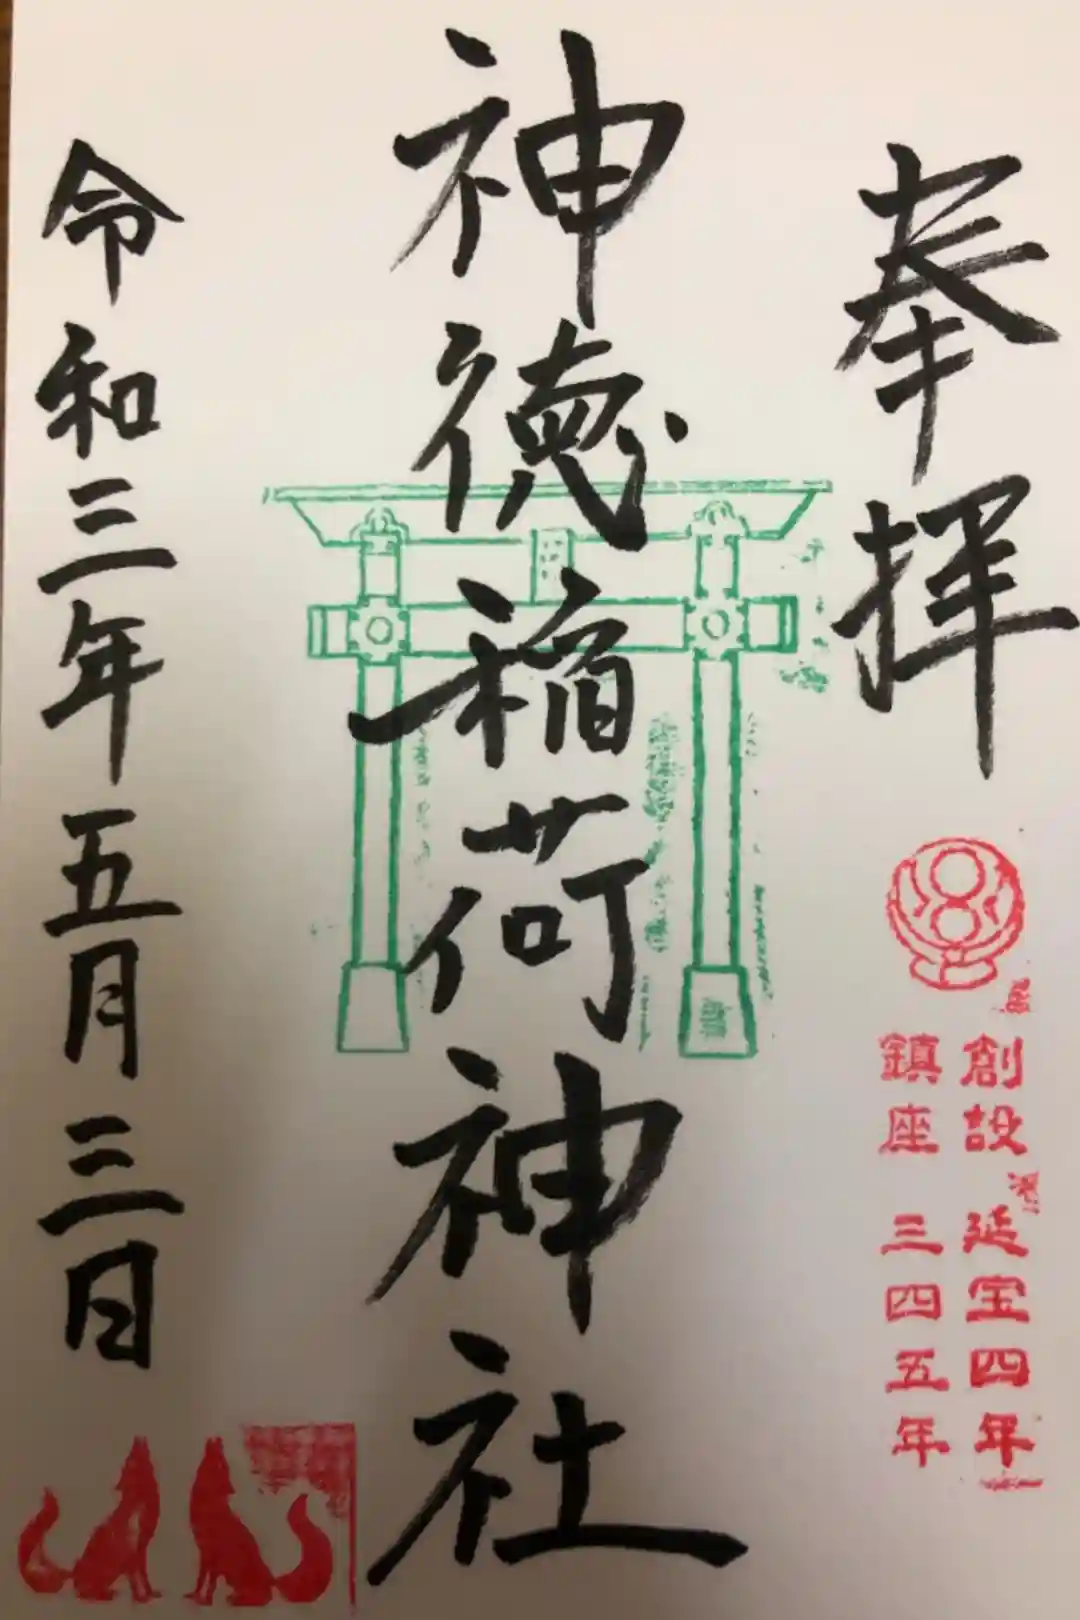 奉拝
創設 延宝四年
鎮座 三四五年
神徳稲荷神社
令和三年五月三日